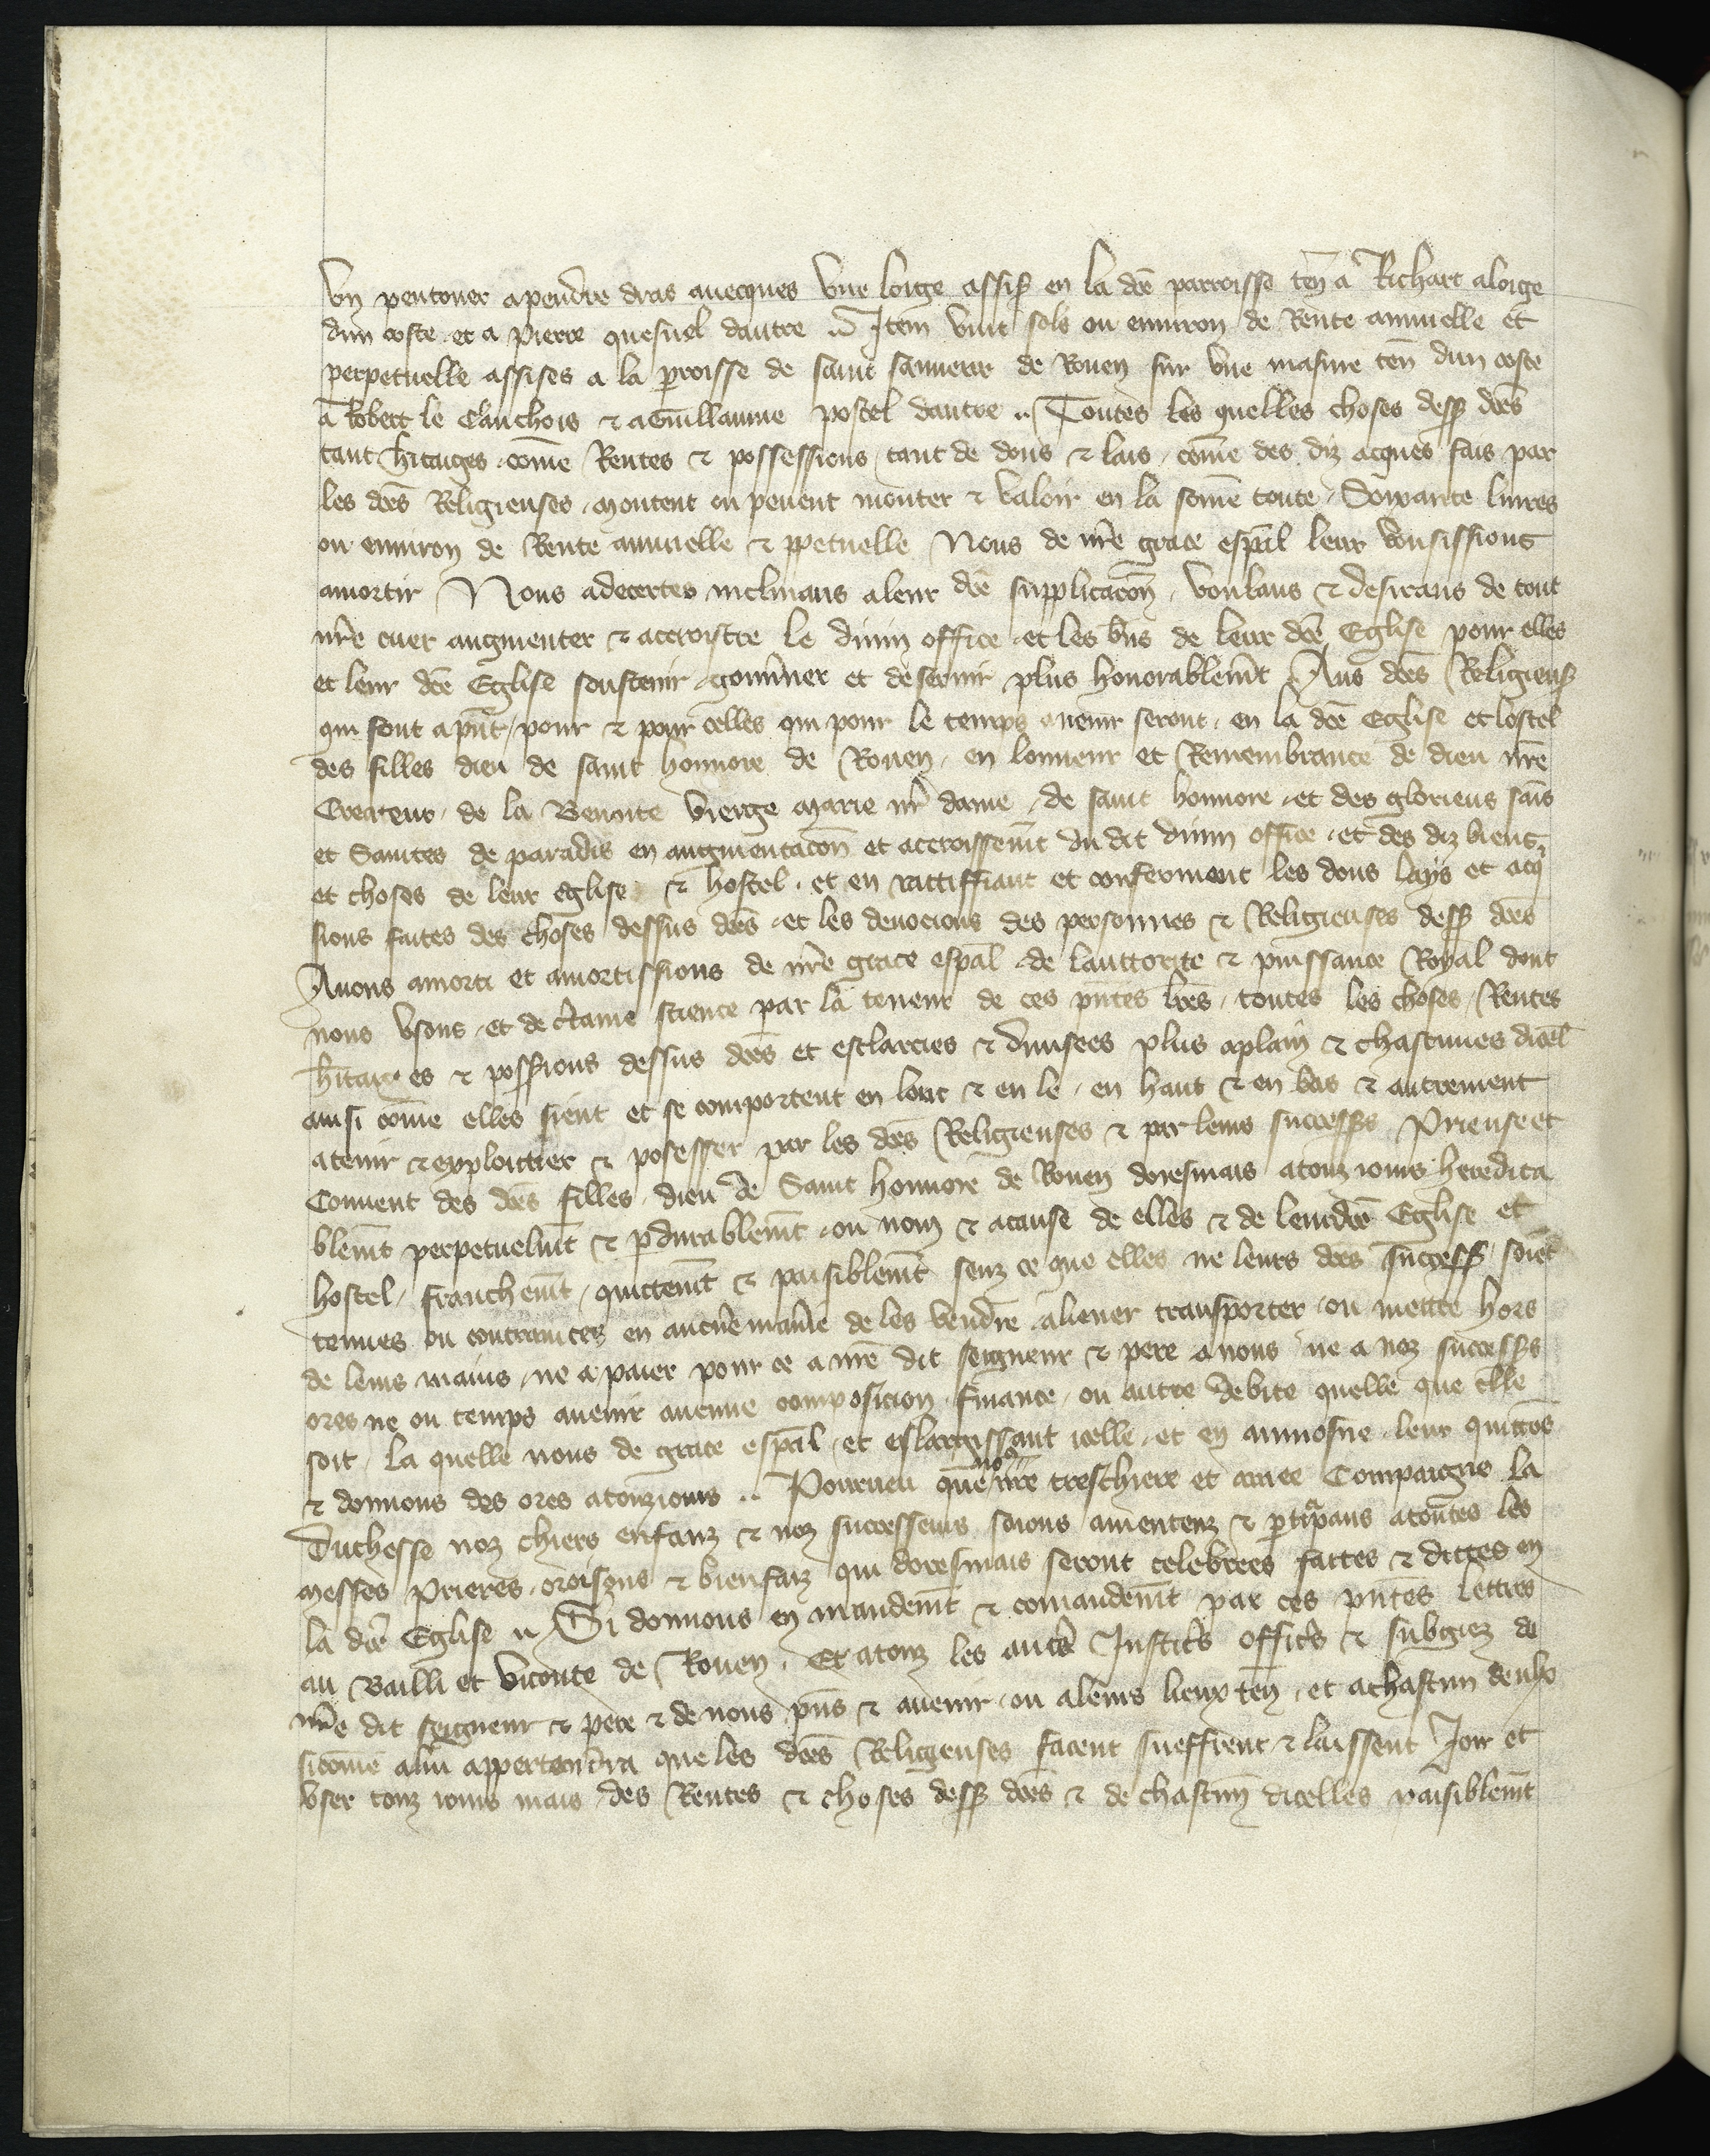 Vn pentoner apendre dras auecques vne loige assis en la dce parroisse ten a Richart aloige
dun coste et a pierre quesnel dautre .. Item vint solz ou enuiron de Rente annuelle et
perpetuelle assises a la proisse de saint sanueur de Rouen sur vne masure ten dun coste
a Robert le Cauchois & a Guillaume postel dautre .. Toutes les quelles choses dess dces
tant hitaiges come Rentes & possessions tant de dons & lais come des diz acques fais par
les dces Religieuses montent ou peuent monter & valoir en la some toute Soixante liures
ou enuiron de Rente annuelle & ppetuelle Nous de nre grace espal leur voulsissions
amortir Nous adecertes inclinans a leur dce supplicacon voulans & desirans de tout
nre cuer augmenter & accroistre le diuin office et les bns de leur dce Eglise pour elles
et leur dce Eglise soustenir gouuner et desseruir plus honorablemt Aus dces Religieus
qui sont apnt pour & pour celles qui pour le temps auenir seront en la dce Eglise et lostel
des filles dieu de saint honnore de Rouen en lonneur et Remembrance de dieu nre
Createur de la Benoite vierge marie nr dame de saint honnore et des glorieus sains
et Saintes de paradis en augmentacon et accroissemt du dit diuin office et des diz biens
et choses de leur eglise & hostel et en rattiffiant et conferment les dons lays et acq
sions faites des choses dessus dces et les deuocions des personnes & Religieuses dess dces
Auons amorti et amortissions de nre grace espal de lauttorite & puissance Royal dont
nous vsons et de ctaine science par la teneur de ces pntes lres toutes les choses Rentes
hitaiges & possions dessus dces et esclarcies & diuisees plus aplain & chascunes dicel
ainsi come elles sient et se comportent en lonc & en le en haut & en bas & autrement
atenir & exploittier & posesser par les dces Religieuses & par leurs successs Prieuse et
Conuent des dces filles dieu de Saint honnore de Rouen doresmais atouz iours heredita
blemt perpetuelmt & pdurablemt ou nom & acause de elles & de leur dce Eglise et
hostel franchemt quittemt & paisiblemt senz ce que elles ne leurs dces success soiet
tenues ou contraintes en aucune manie de les vendre aliener transporter ou mettre hors
de leurs mains ne a paier pour ce a nre dit seigneur & pere a nous ne a noz successs
ores ne ou temps auenir aucune composicion finance ou autre debite quelle que elle
soit la quelle nous de grace espal et eslargissant icelle et en aumosne leur quittos
& donnons des ores atouziours .. Pourueu que nos nre treschiere et amee Compaigne la
Duchesse noz chiers enfanz & noz successeurs soions amentenz & ptipans atoutes les
messes Prieres oroisons & bienfaiz qui doresmais seront celebrees faittes & dittes en
la dce Eglise .. Si donnons en mandemt & comandemt par ces pntes lettres
au Bailli et viconte de Rouen Et atouz les autres Justics offics & subgiez de
nre dit seigneur & pere & de nous pns & auenir ou aleurs lieux ten et a chascun deulx
sicome alui appartendra que les dces Religieuses facent sueffrent & laissent Joir et
vser touz iours mais des Rentes & choses dess dces & de chascun dicelles paisiblemt